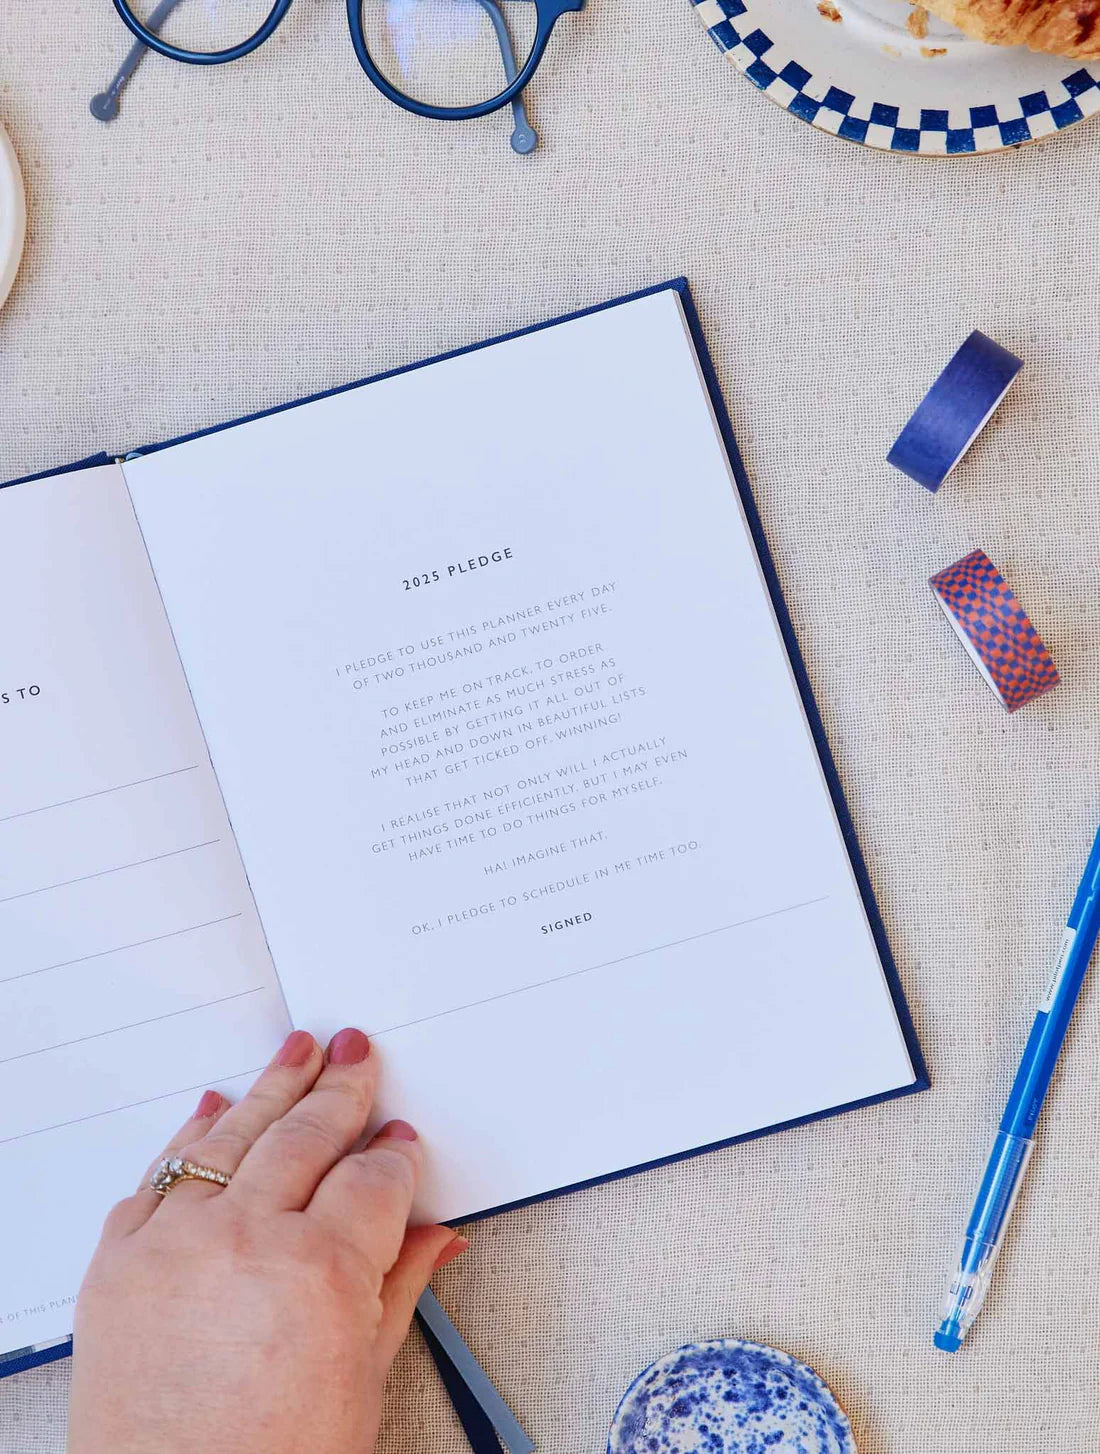 S TO
OF THIS PLAN
2025 PLEDGE
I PLEDGE TO USE THIS PLANNER EVERY DAY
OF TWO THOUSAND AND TWENTY FIVE.
TO KEEP ME ON TRACK, TO ORDER
AND ELIMINATE AS MUCH STRESS AS
POSSIBLE BY GETTING IT ALL OUT OF
MY HEAD AND DOWN IN BEAUTIFUL LISTS
THAT GET TICKED OFF. WINNING!
I REALISE THAT NOT ONLY WILL I ACTUALLY
GET THINGS DONE EFFICIENTLY, BUT I MAY EVEN
HAVE TIME TO DO THINGS FOR MYSELF.
HA! IMAGINE THAT.
OK, I PLEDGE TO SCHEDULE IN ME TIME TOO.
SIGNED
www.pilotpen.com